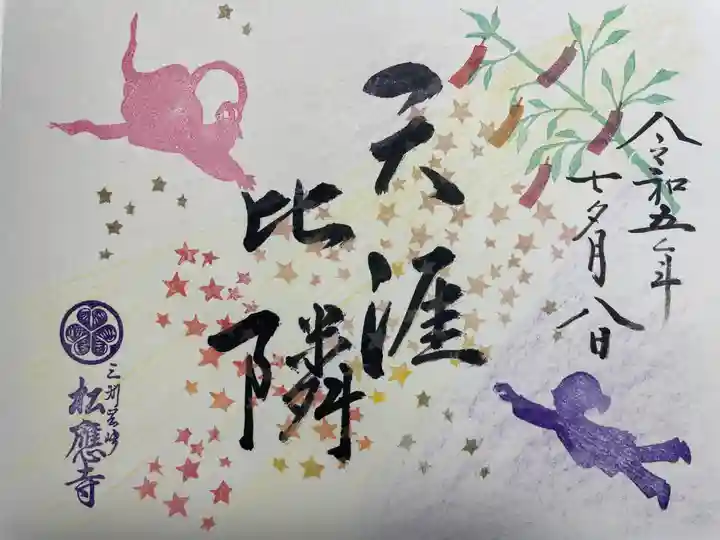 令和五年
七夕月八日
天涯
比隣
三州岡崎
松應寺